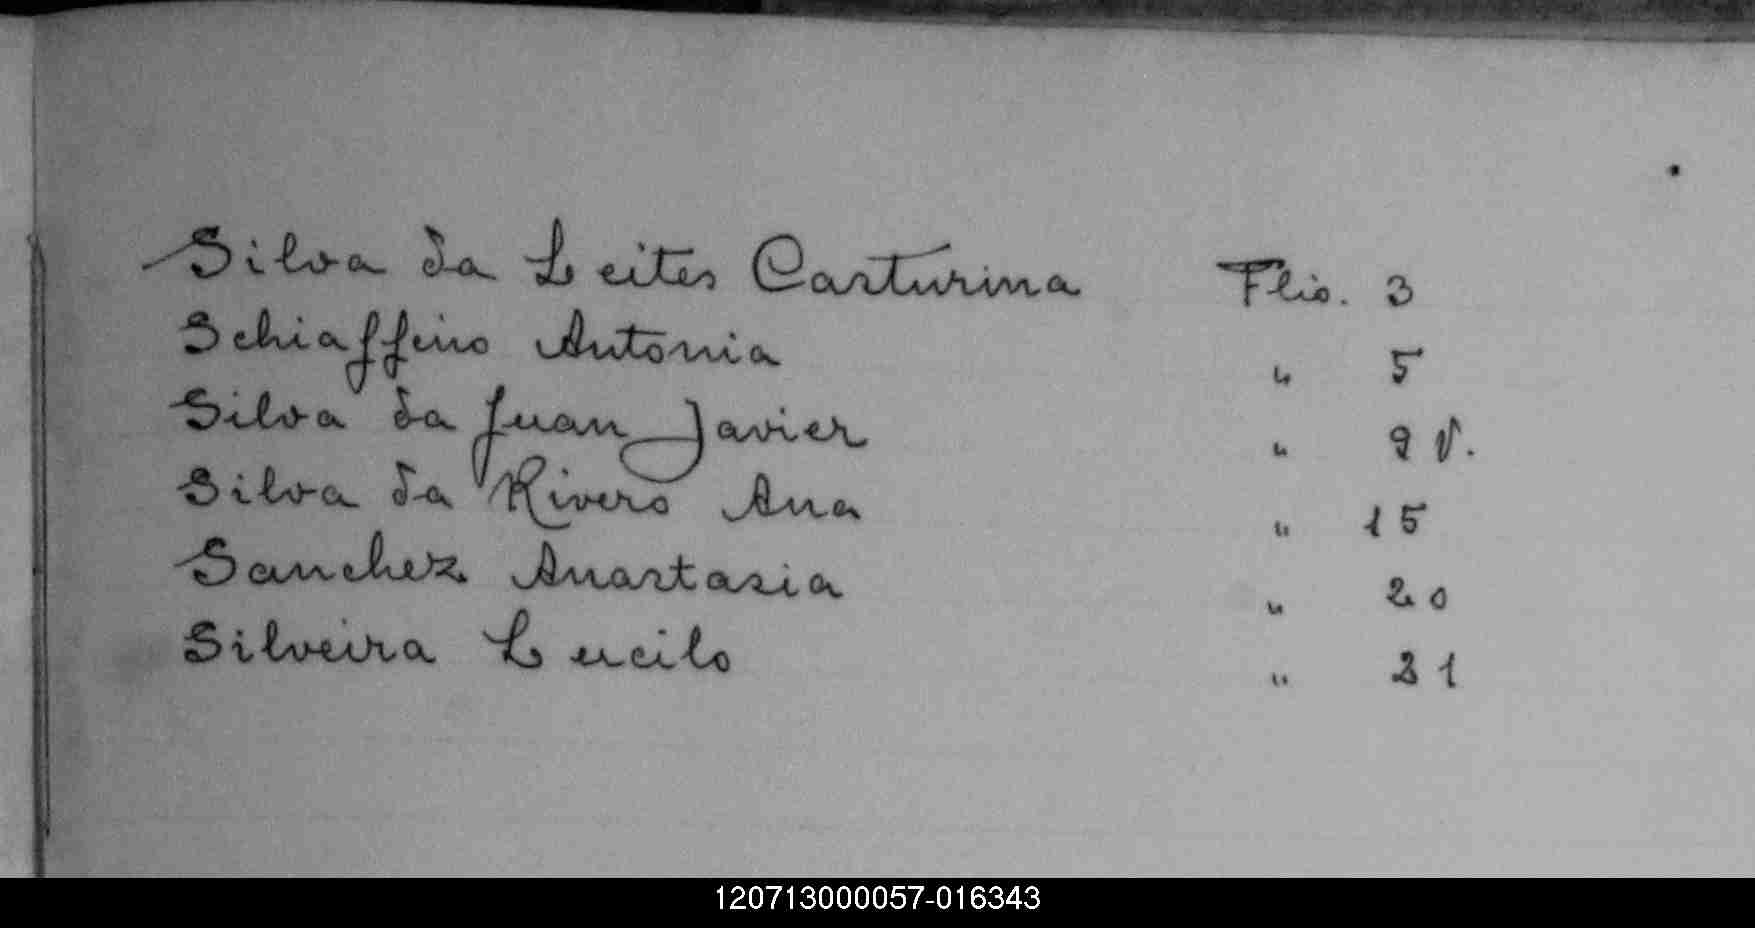 Silva da Leites Casturina Flio. 3
Schiaffino Antonia " 5
Silva da Juan Javier " 9 V.
Silva da Rivero Ana " 15
Sanchez Anastasia " 20
Silveira Lucilo " 21
120713000057-016343